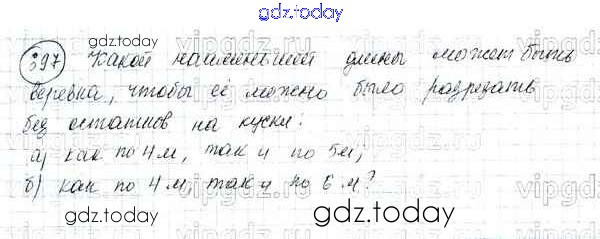 gdz.today
397 Какой наименьшей длины может быть
веревка, чтобы её можно было разрезать
без остатков на куски:
а) как по 4 м, так и по 5 м;
б) как по 4 м, так и по 6 м?
gdz.today
gdz.today